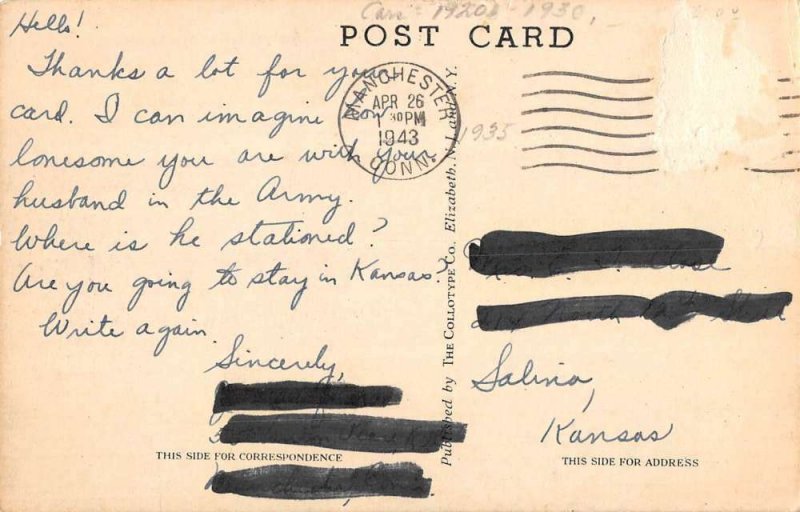 Cars - 1920s - 1930,
POST CARD
Hello!
Thanks a lot for your
card. I can imagine how
lonesome you are with your
husband in the Army.
Where is he stationed?
Are you going to stay in Kansas?
Write again.
Sincerely,
THIS SIDE FOR CORRESPONDENCE
MANCHESTER
APR 26
1 30 PM
1943
CONN.
1935
Published by THE COLLOTYPE CO. Elizabeth, N.J. and N.Y.
Salina,
Kansas
THIS SIDE FOR ADDRESS